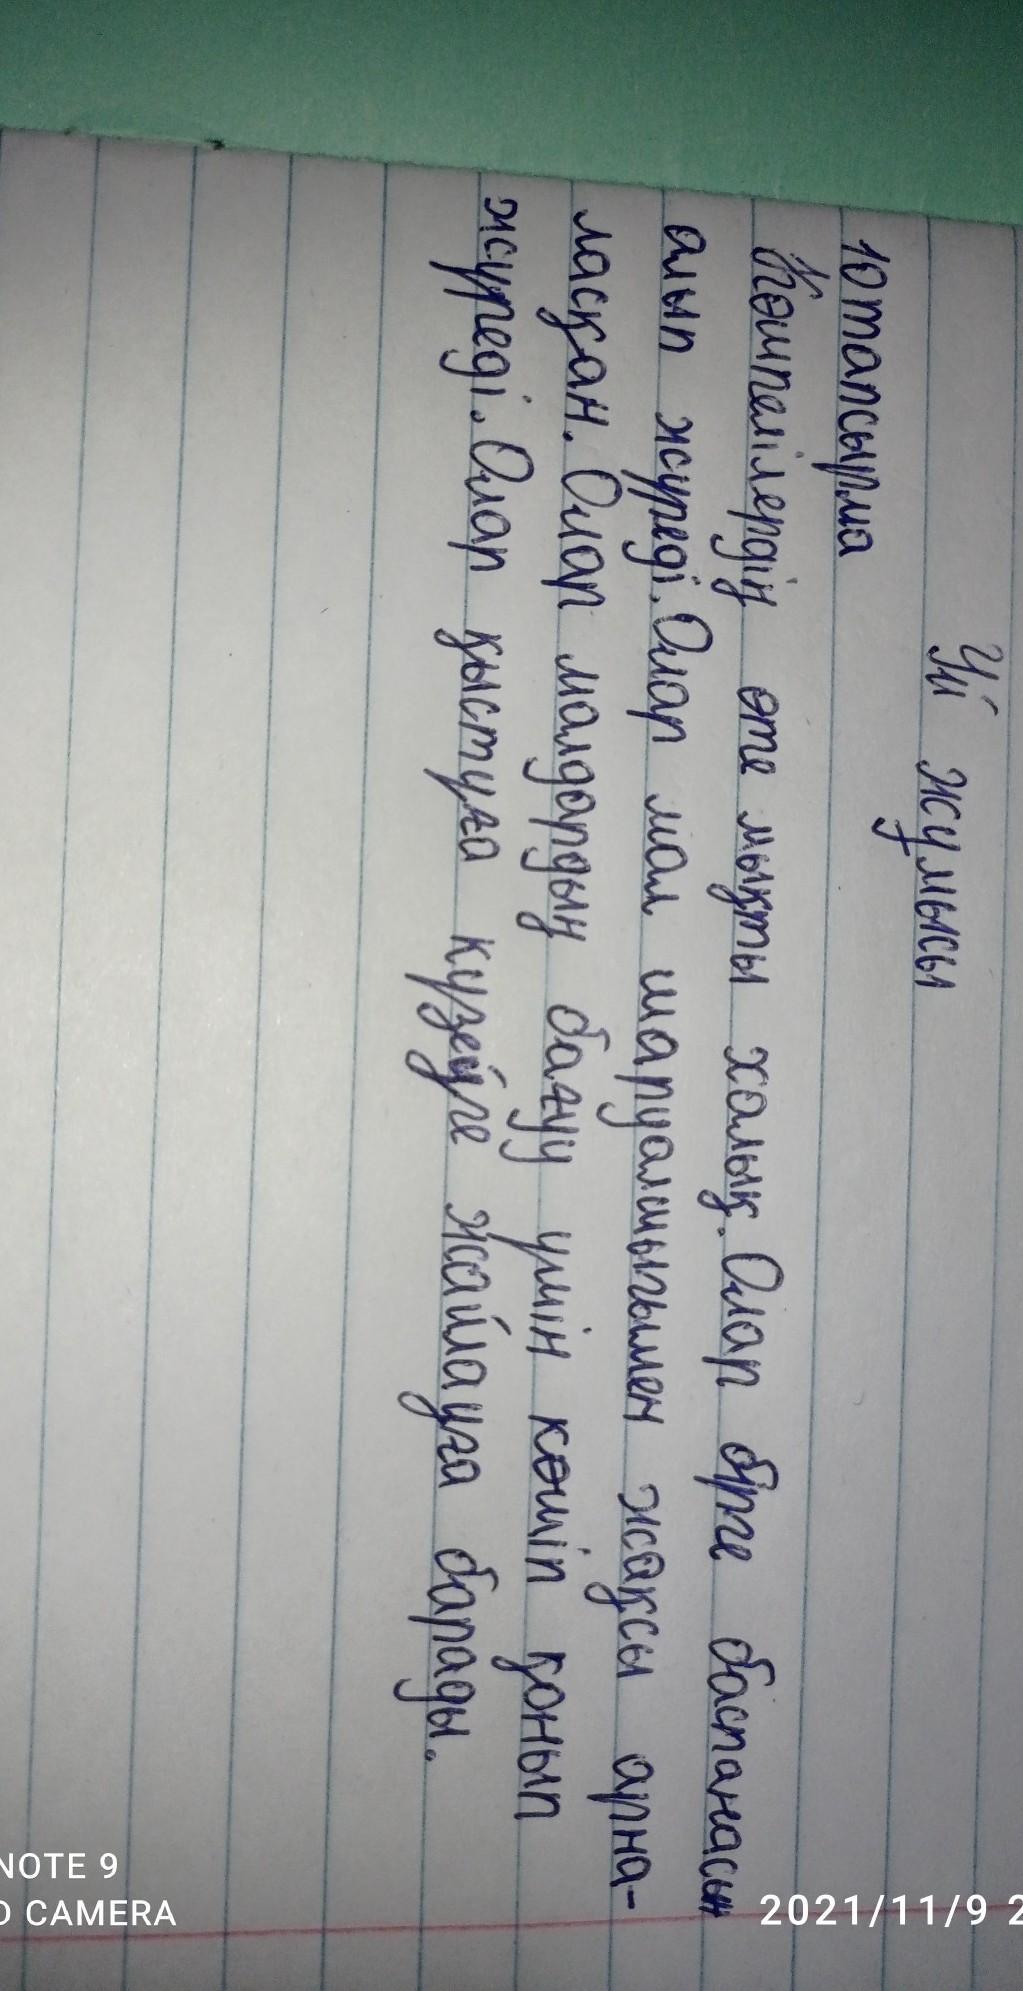 Үй жұмысы
10 тапсырма
Көшпелілердің өте мықты халық. Олар бірге баспанасын
алып жүреді. Олар мал шаруашығымен жақсы арна-
ласқан. Олар малдардың бағуу үшін көшіп қонып
жүреді. Олар қыстуға күзеуге жайлауға барады.
NOTE 9
CAMERA
2021/11/9 2